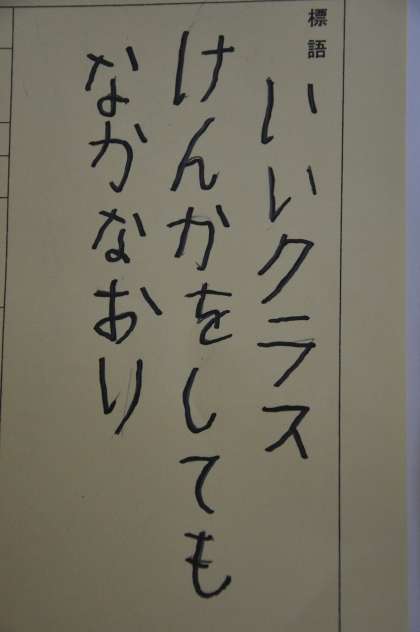 標語
いいクラス
けんかをしても
なかなおり